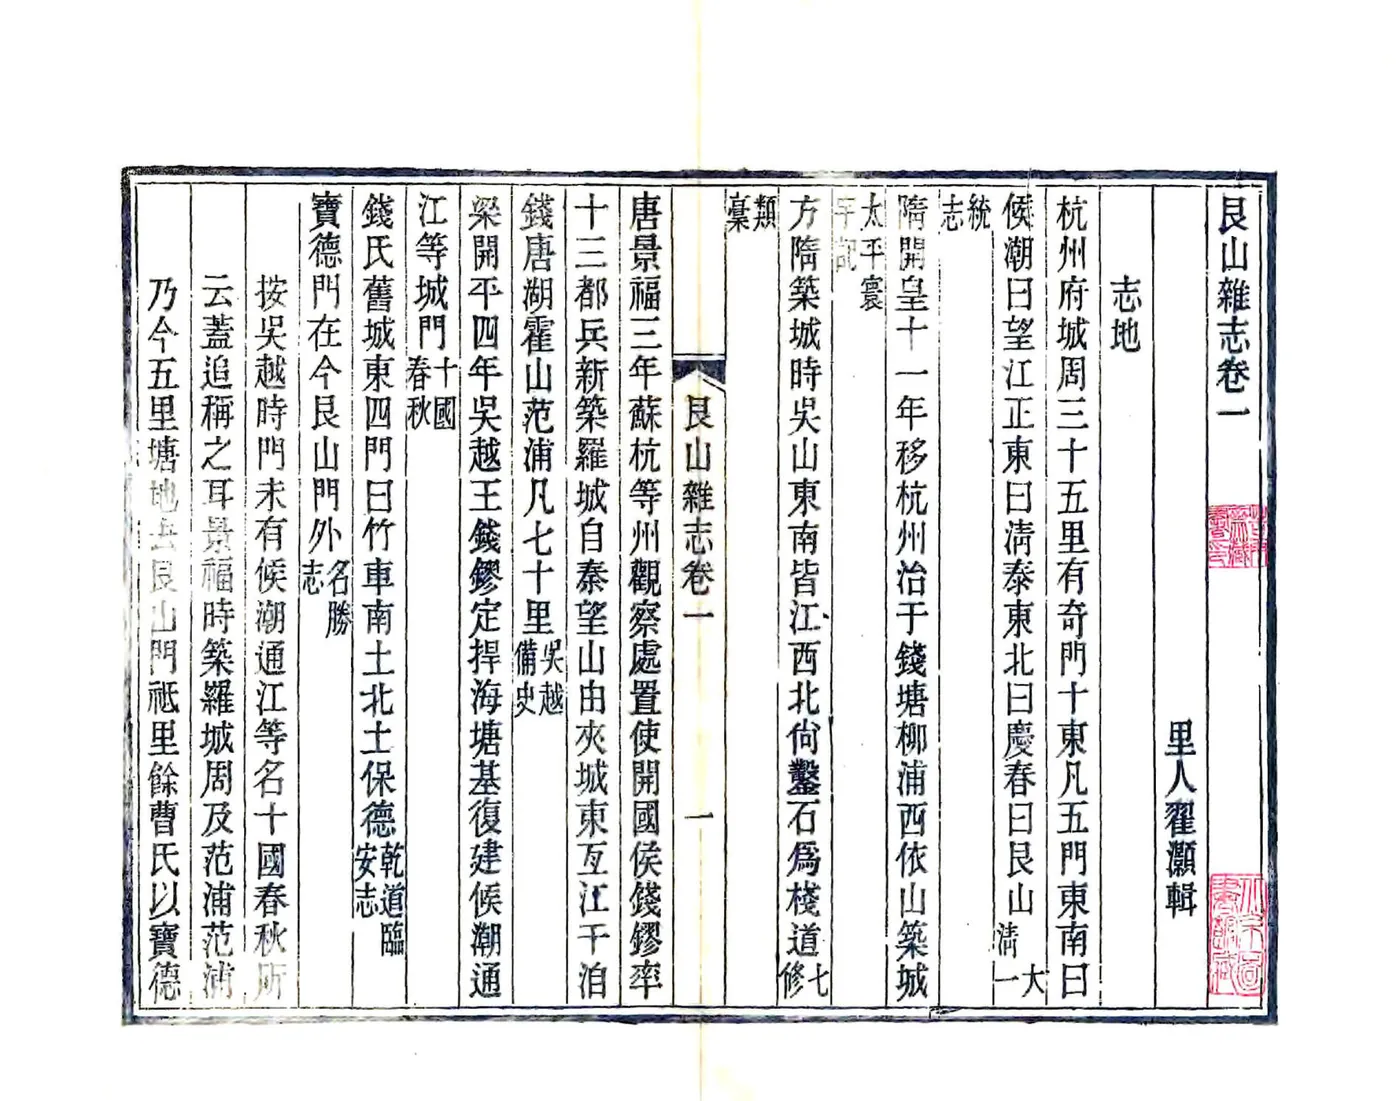 艮山雜志卷一
里人翟灝輯
志地
杭州府城周三十五里有奇門十東凡五門東南曰
候潮曰望江正東曰淸泰東北曰慶春曰艮山大淸一
統志
隋開皇十一年移杭州治于錢塘柳浦西依山築城
太平寰宇記
方隋築城時吳山東南皆江西北尙鑿石爲棧道七修
類稾
艮山雜志卷一
一
唐景福三年蘇杭等州觀察處置使開國侯錢鏐率
十三都兵新築羅城自秦望山由夾城東亙江干泊
錢唐湖霍山范浦凡七十里吳越備史
梁開平四年吳越王錢鏐定捍海塘基復建候潮通
江等城門十國春秋
錢氏舊城東四門曰竹車南土北土保德乾道臨安志
寶德門在今艮山門外名勝志
按吳越時門未有候潮通江等名十國春秋所
云蓋追稱之耳景福時築羅城周及范浦范浦
乃今五里塘地去艮山門祇里餘曹氏以寶德